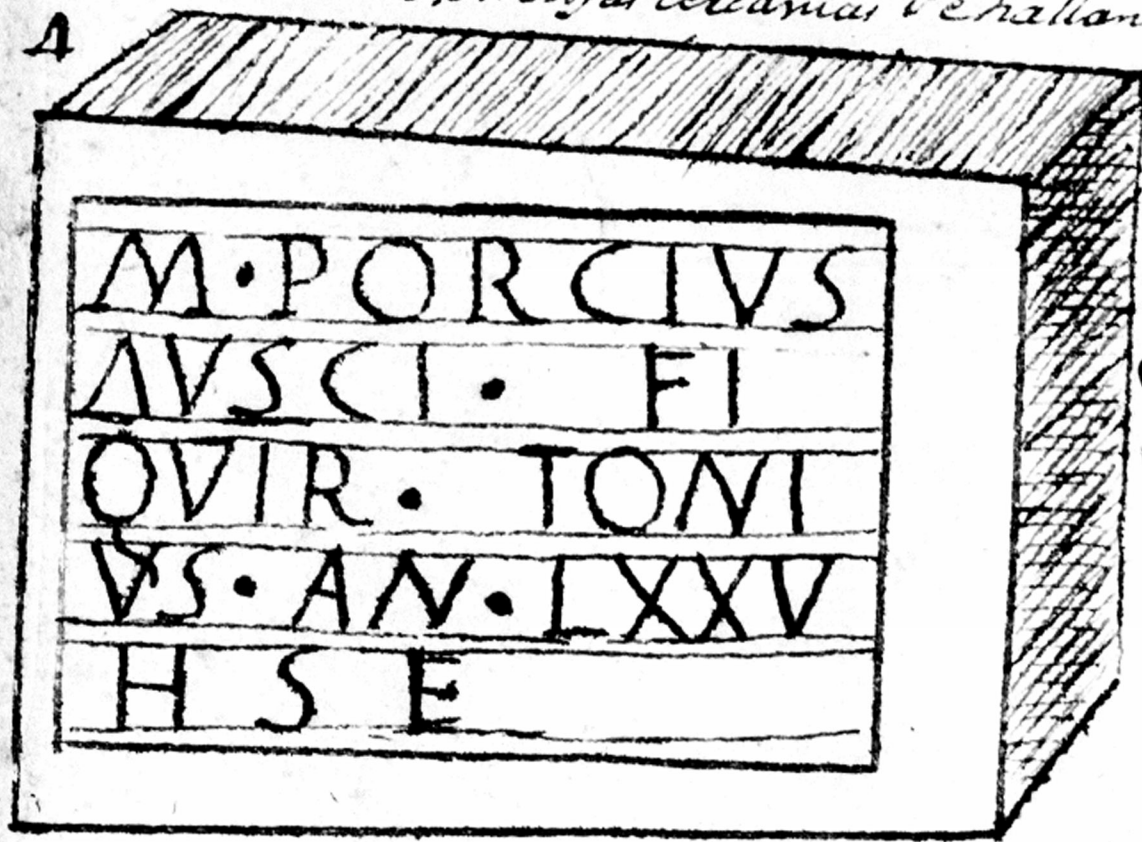 M · PORCIVS
AVSCI · FI
QVIR · TONI
VS · AN · LXXV
H S E